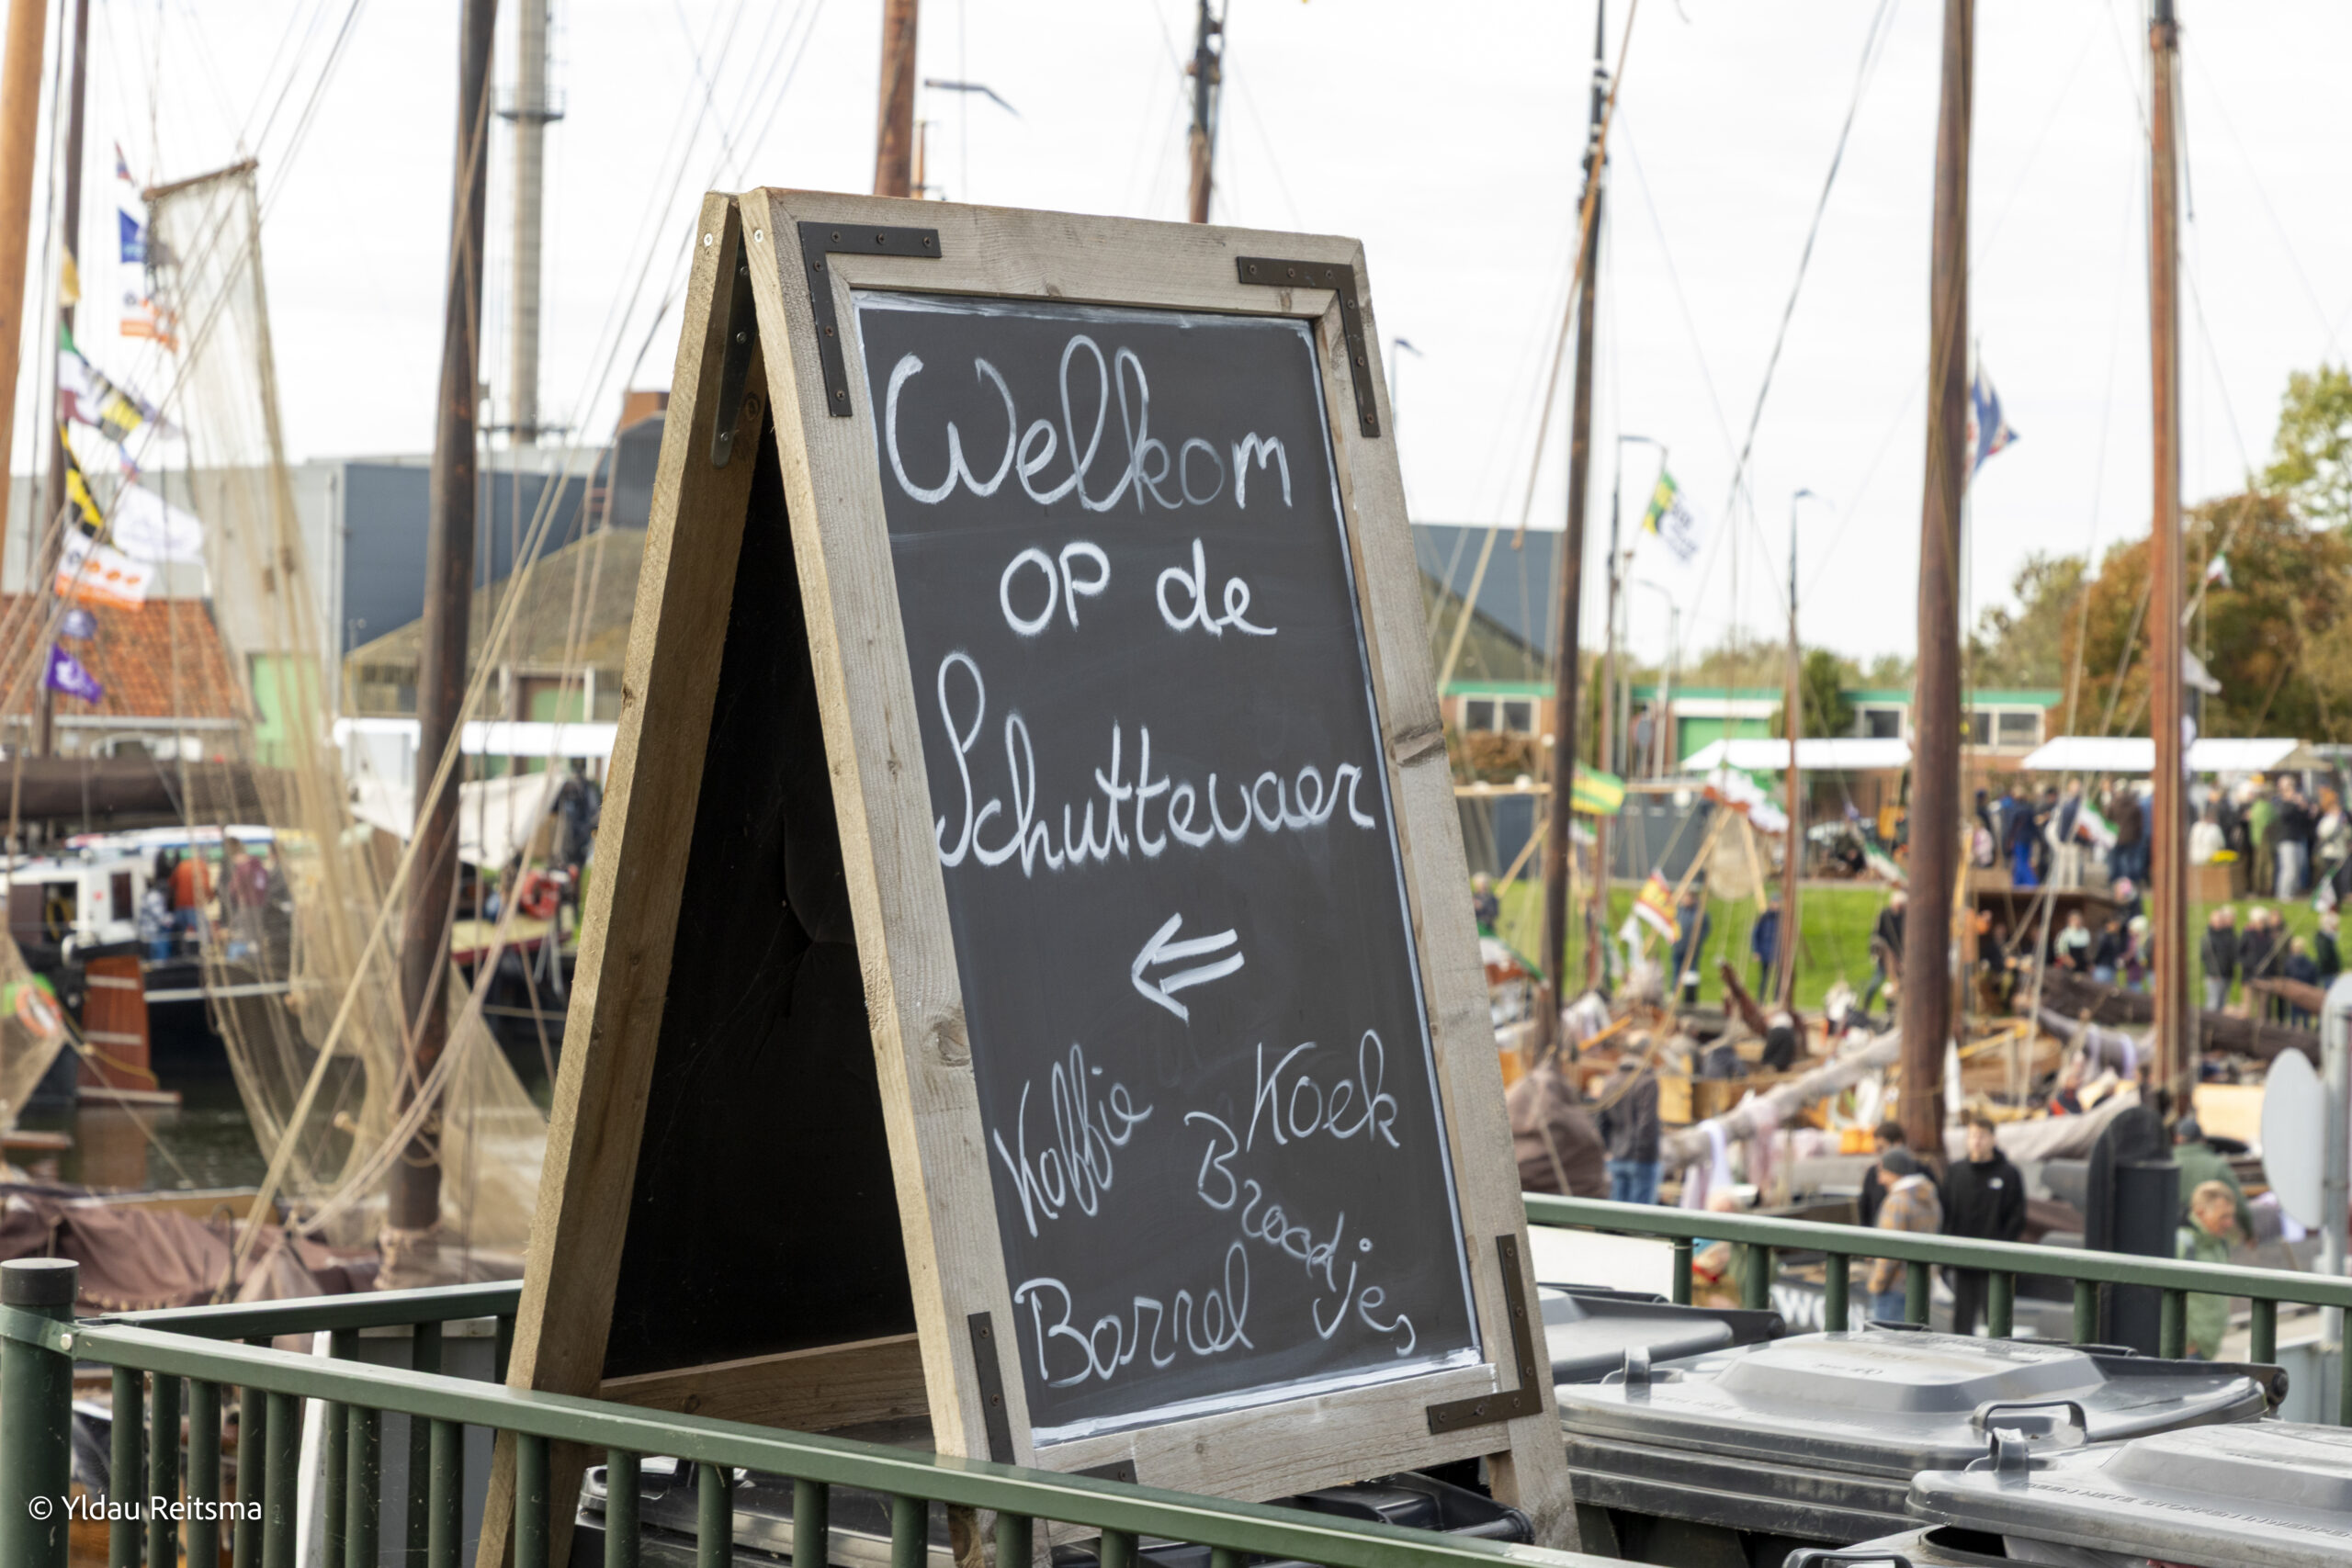 Welkom
op de
Schuttevaer
Koffie Koek
Broodjes
Borrel
© Yldau Reitsma